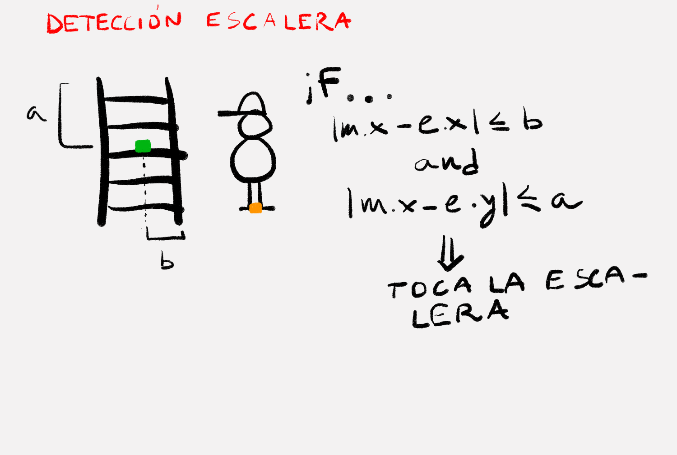 DETECCIÓN ESCALERA
a
b
iF...
|m.x - e.x| ≤ b
and
|m.x - e.y| ≤ a
⇓
TOCA LA ESCA-
LERA